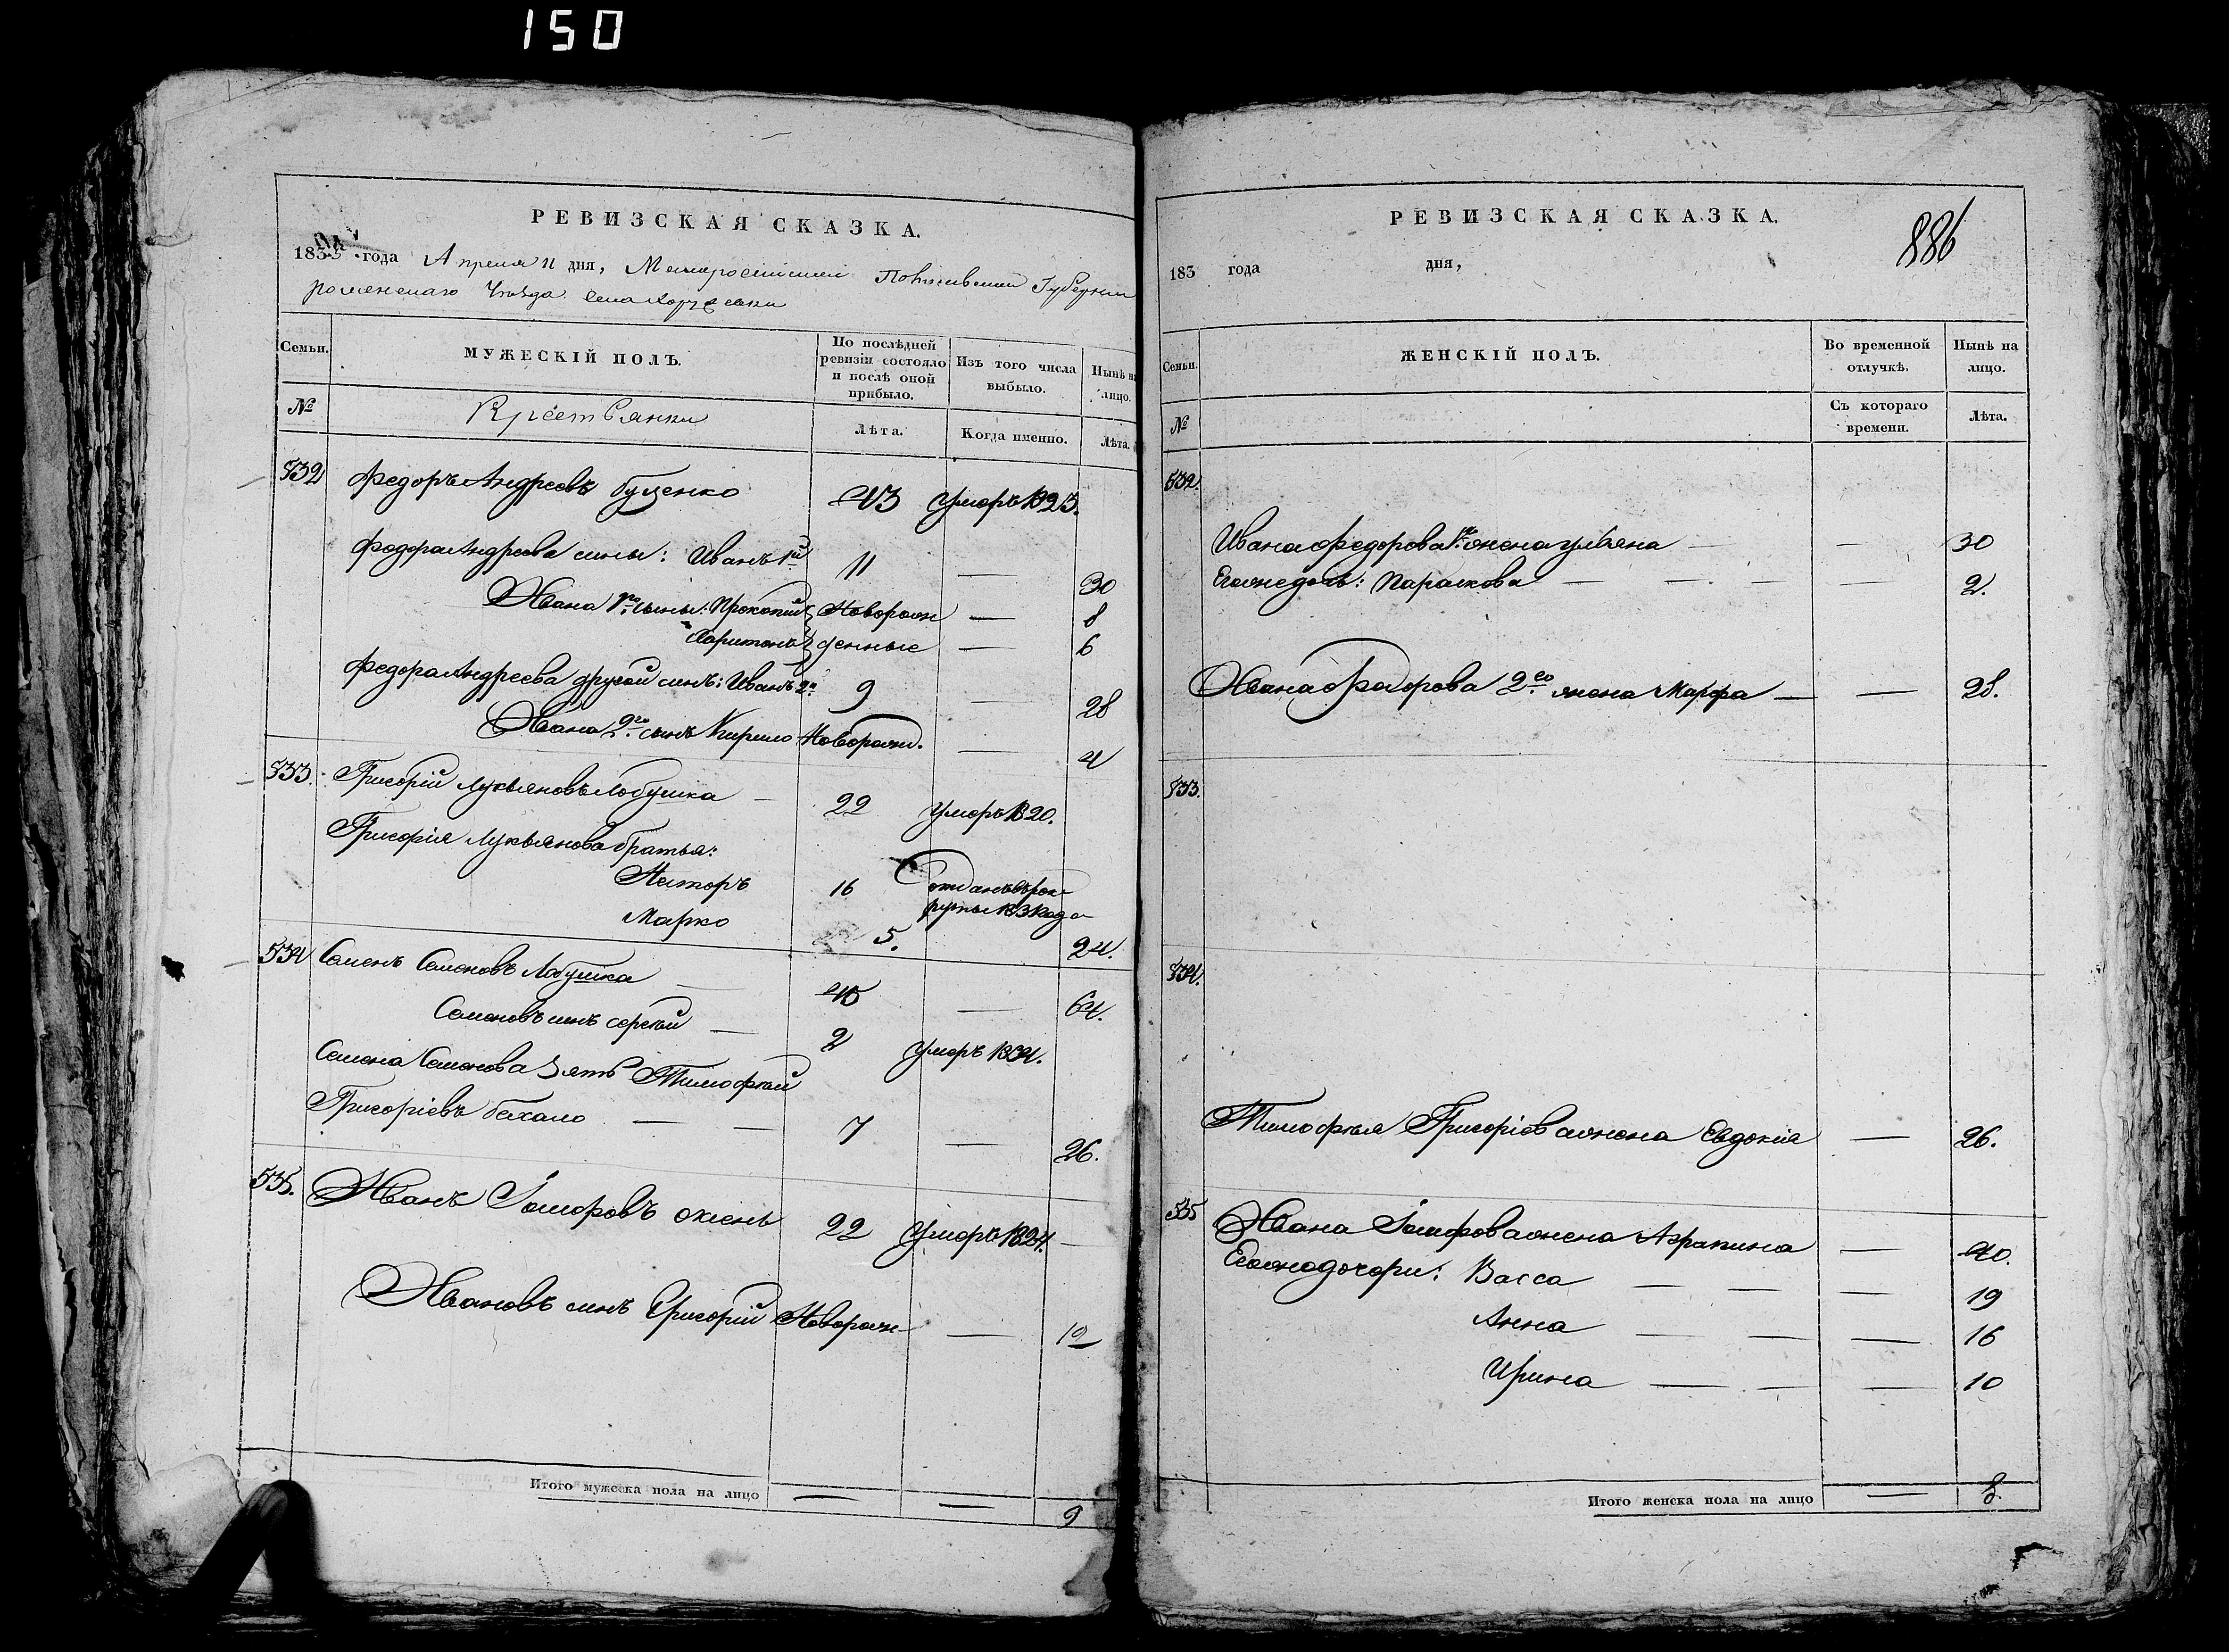 150
РЕВИЗСКАЯ СКАЗКА.
1835 года Апреля 11 дня, Малоросийской Полтавской Губернии
роменскаго Уезда. Села
Семьи.
МУЖЕСКІЙ ПОЛЪ.
По послѣдней ревизіи состояло и послѣ оной прибыло.
Изъ того числа выбыло.
Нынѣ на лицо.
№
Лѣта.
Когда именно.
Лѣта.
532 Федоръ Андреевъ буценко 43 Умеръ 1823.
Федора Андреева сины: Иванъ 1й 11 — 30
Ивана 1го сыны: Прокопий Новорож — 8
Харитонъ денные — 6
Федора Андреева другой синъ: Иванъ 2й 9 — 28
Ивана 2го сынъ Кирило Новорожд. — 4
533. Григорій Лукьяновъ Лобушка — 22 Умеръ 1820.
Григорія Лукьянова братья:
Несторъ 16 отданъ въ рек
руты 1831 года
Марко 5. 24.
534 Семенъ Семеновъ Лобушка — 45 — 64.
Семеновъ синъ сергѣй — 2 Умеръ 1834.
Семена Семенова Зять Тимофѣй
Григоріевъ бахало — — 7 — 26.
535. Иванъ Іосифовъ 22 Умеръ 1824. —
Ивановъ синъ Григорій Новорож — 12
Итого мужеска пола на лицо — — 9
РЕВИЗСКАЯ СКАЗКА.
886
183 года дня,
Семьи.
ЖЕНСКІЙ ПОЛЪ.
Во временной отлучкѣ.
Нынѣ на лицо.
№
Съ котораго времени.
Лѣта.
532.
Ивана Федорова 1го жена ульяна — — 30
Егожедочь: Параскова — — — — 2.
Ивана Федорова 2го жена Марфа — — 28.
533.
534.
Тимофѣя Григоріева жена Евдокия — 26.
535 Ивана Іосифова жена Агрипина — 40.
Егожедочери: Васса — — — 19
Анна — — — 16
Ирина — — — 10
Итого женска пола на лицо — 8.